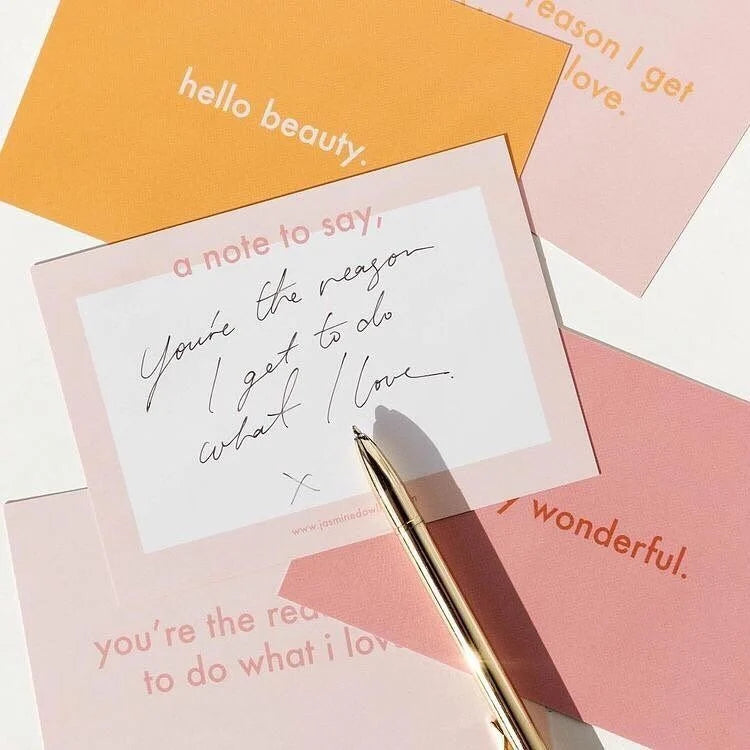 reason I get
love.
hello beauty.
a note to say,
You're the reason
I get to do
what I love.
x
wonderful.
you're the
to do what i